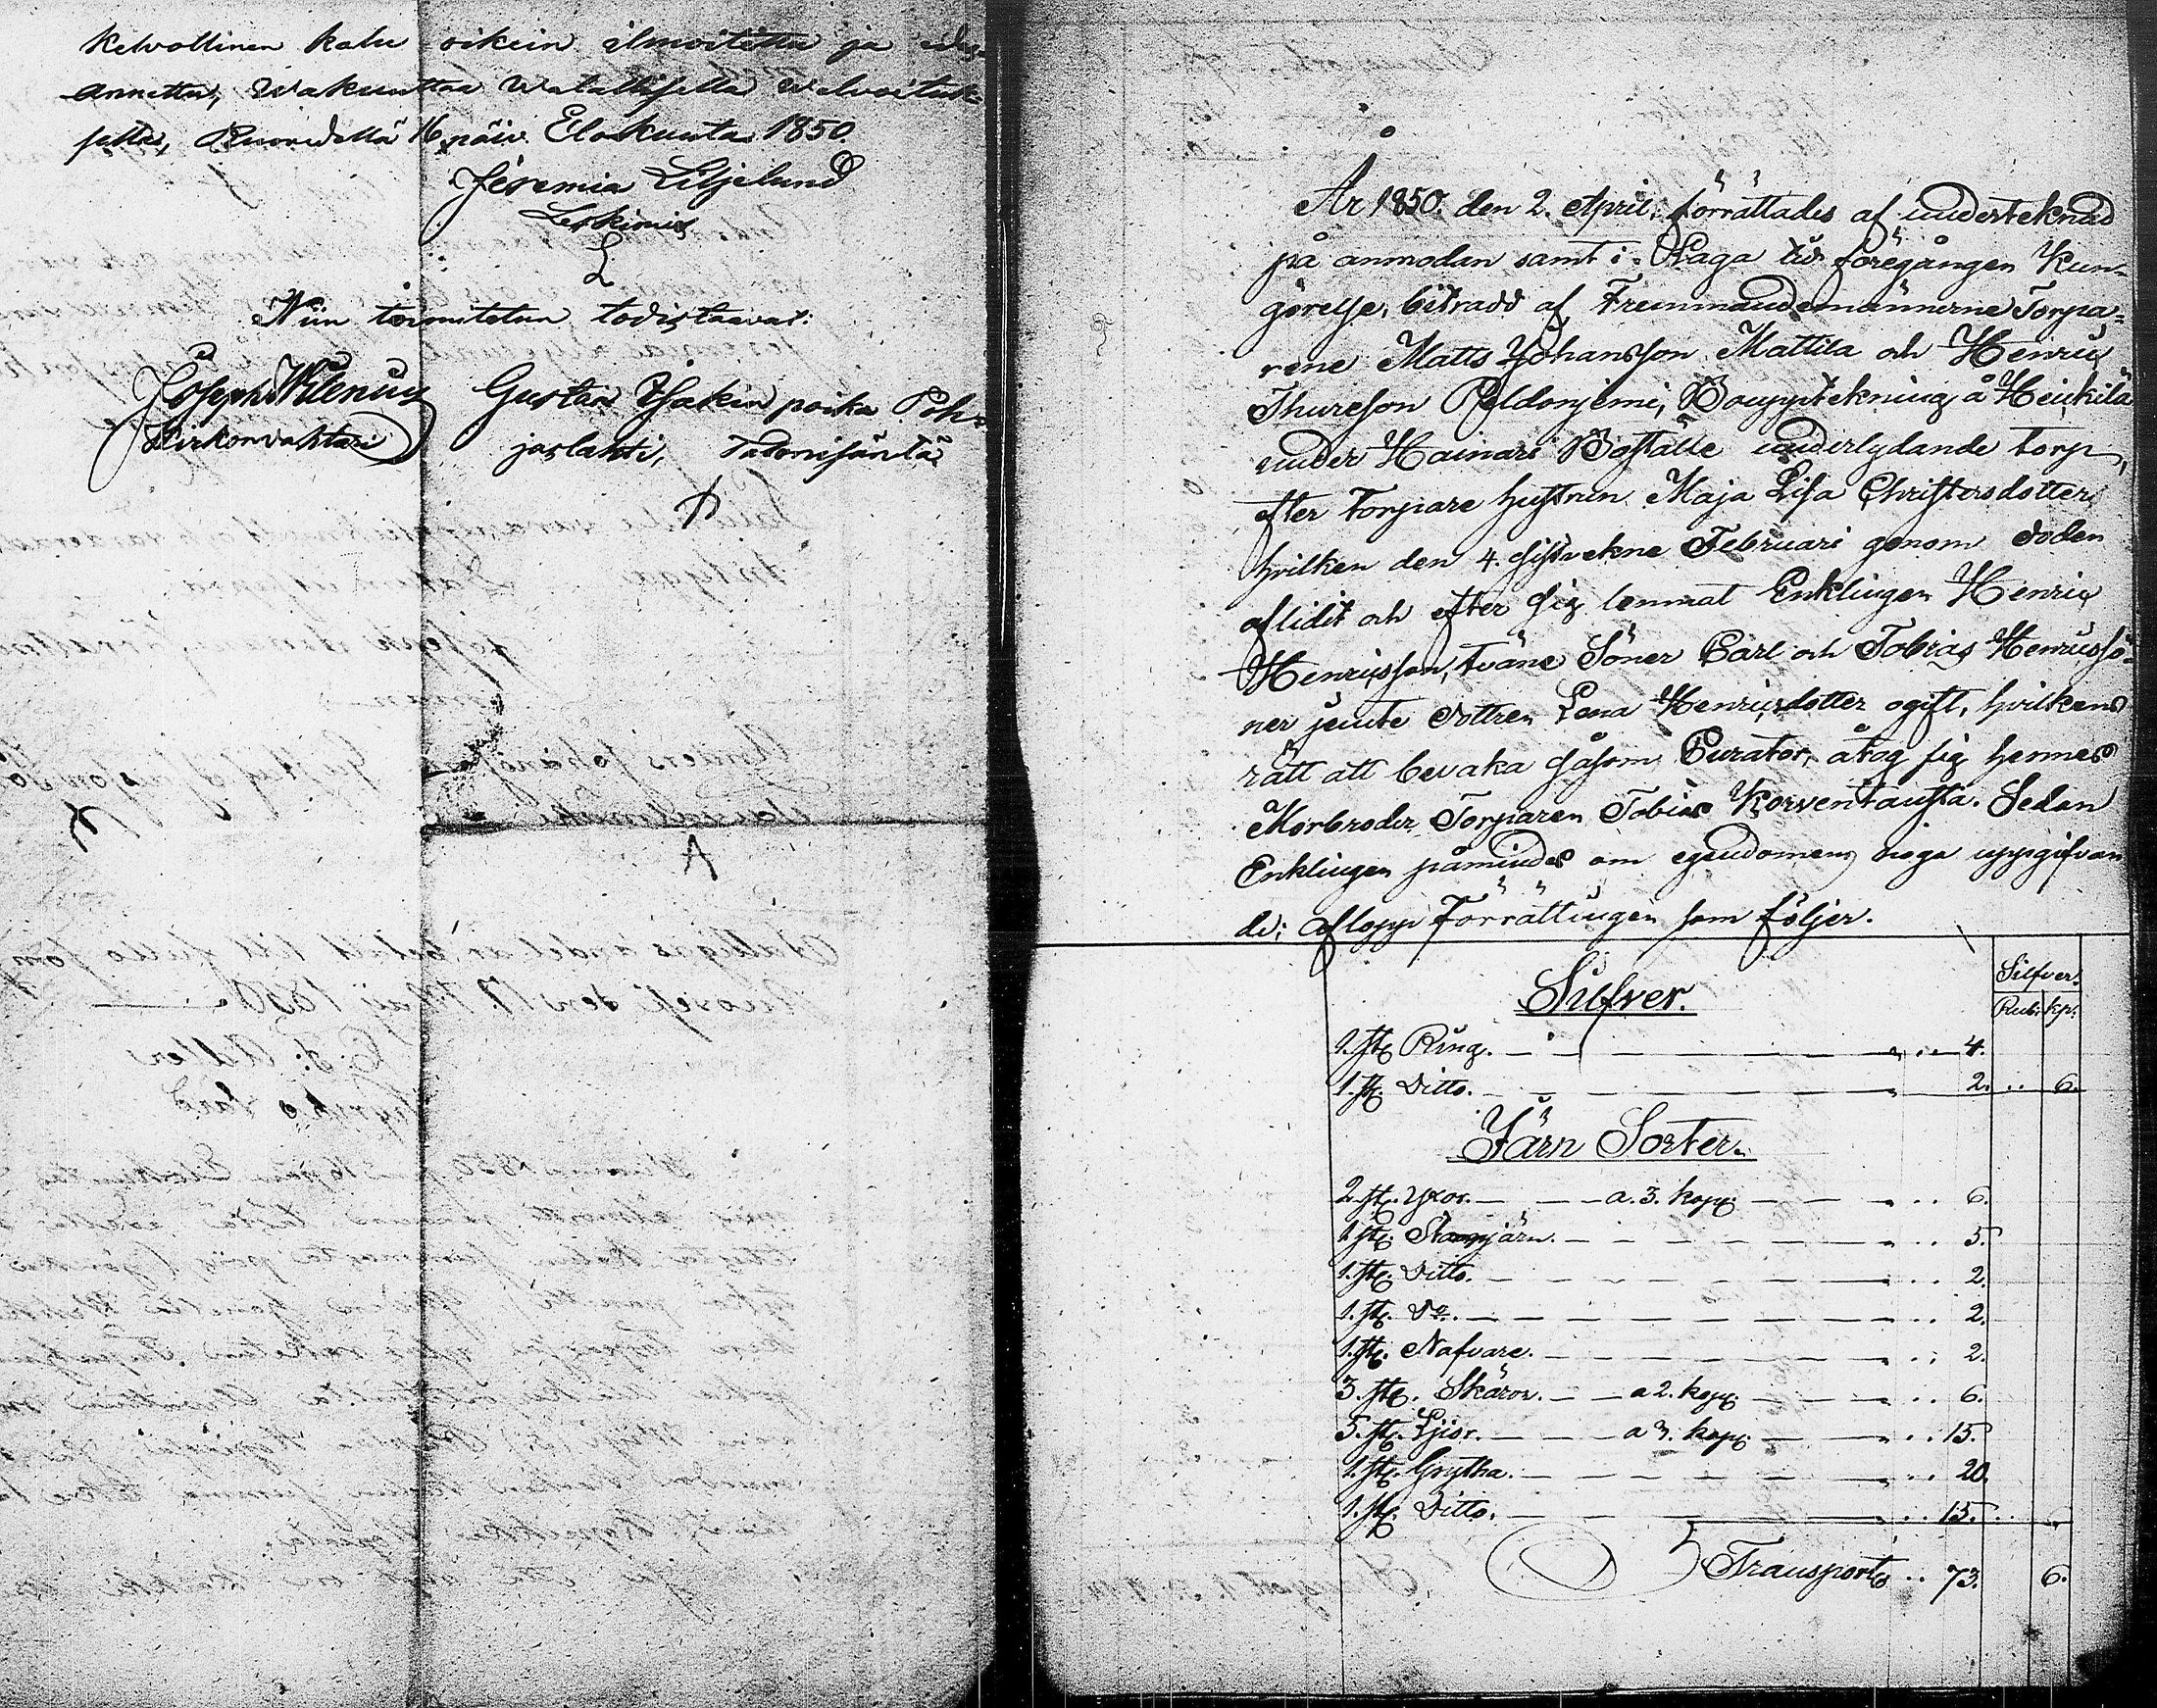 kelvollinen kalu oikein ilmoitettu ja edes
annettu, Wakuuttaa walallisella welvoituk-
sella, Ruovedellä 16 päiv. Elokuuta 1850.
Jeremia Liljelund
Leskimies
L
Niin toimitetun todistaavat:
Joseph Wilenius
Kirkonvahtari
Gustav Isakin poika Poh-
jaslahti, Talonisäntä
År 1850. den 2. April, förrättades af undertecknad
på anmodan samt i Laga tid föregången Kun-
görelse, biträdd af Fremmandemännerne Torpa-
rene Matts Johansson Mattila och Henric
Thureson Peldoniemi, Bouppteckning å Heickilä
under Hainari Boställe underlydande torp,
efter Torpare hustrun Maja Lisa Christersdotter,
hvilken den 4. sistvekne Februari genom döden
aflidit och efter sig lemnat Enklingen Henric
Henricsson, tväne Söner Carl och Tobias Henricssö-
ner jemte dottren Lena Henricsdotter ogift, hvilkens
rätt att bevaka såsom Curator, åtog sig hennes
Morbroder Torparen Tobias Korventausta. Sedan
Enklingen påmindes om egendomens noga uppgifvan
de; aflopp Förrättningen som följer.
Silfver.
Rub. kp.
Silfver.
1. st. Ring. 4.
1. st. Ditto. 2. 6.
Järn Sorter.
2. st. Yxor. a. 3. kop. 6.
1. st. Stampjärn. 5.
1. st. Ditto. 2.
1. st. Do. 2.
1. st. Nafvare. 2.
3. st. Skäror. a 2. kop. 6.
5. st. Ljior. a 3. kop. 15.
1. st. Grytha. 20.
1. st. Ditto. 15.
Transport 73. 6.